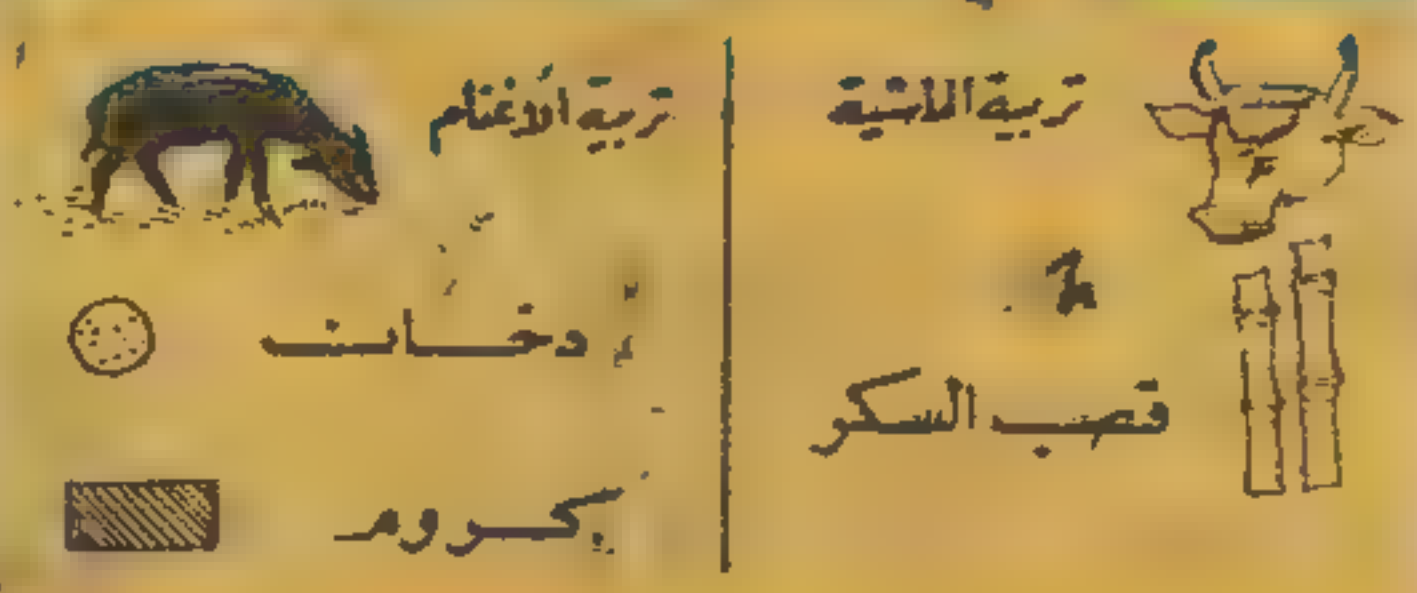 تربية الماشية
قصب السكر
تربية الأغنام
دخان
كروم